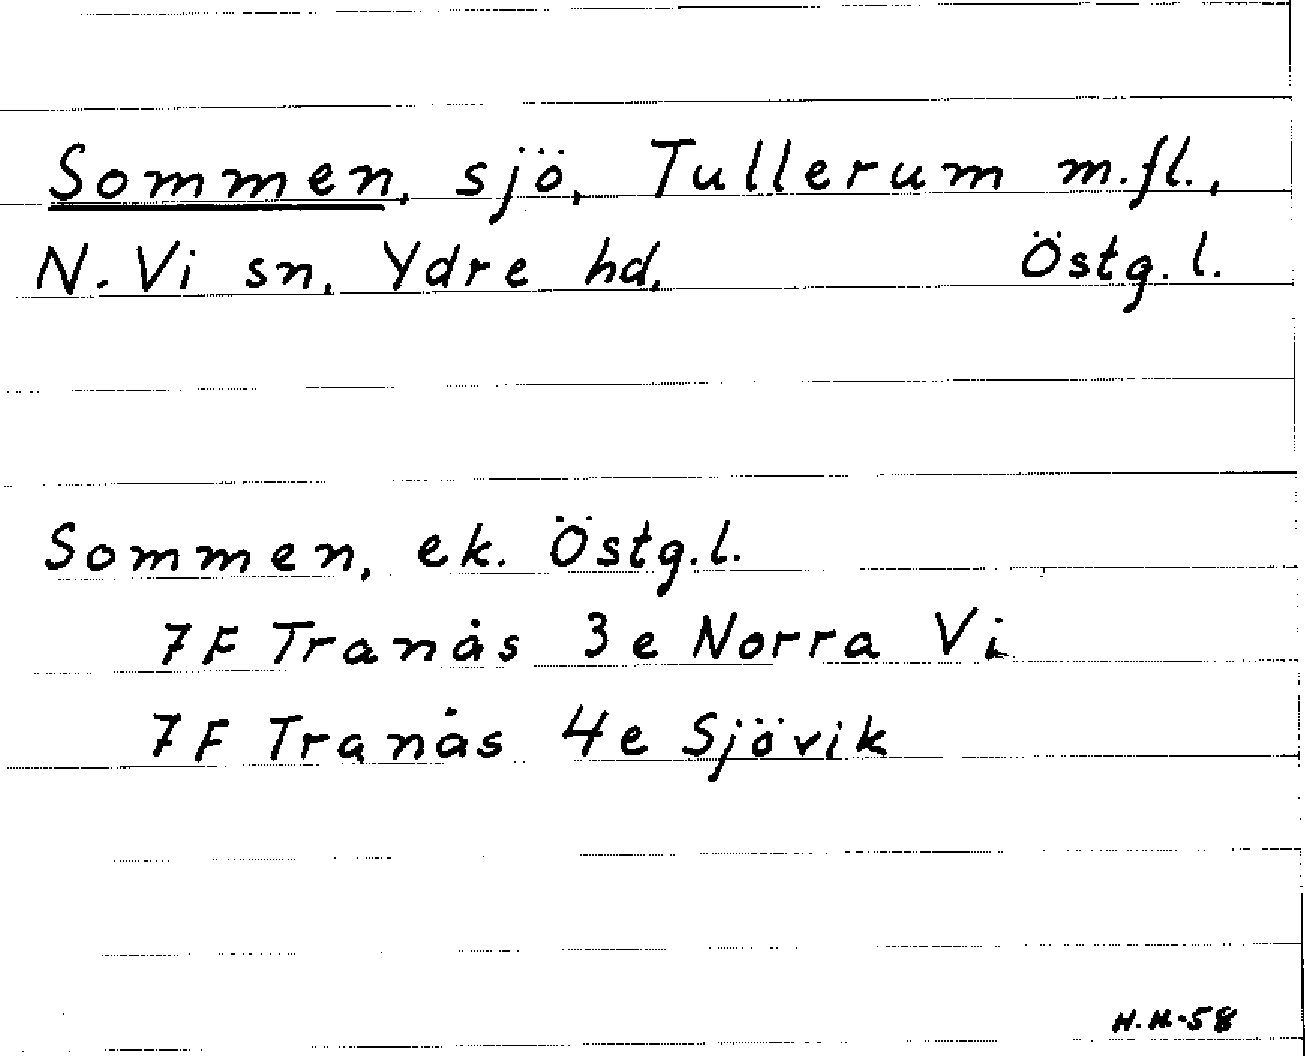 Sommen, sjö, Tullerum m.fl.,
N. Vi sn, Ydre hd, Östg. l.
Sommen, ek. Östg.l.
7F Tranås 3e Norra Vi
7F Tranås 4e Sjövik
H.H.-58